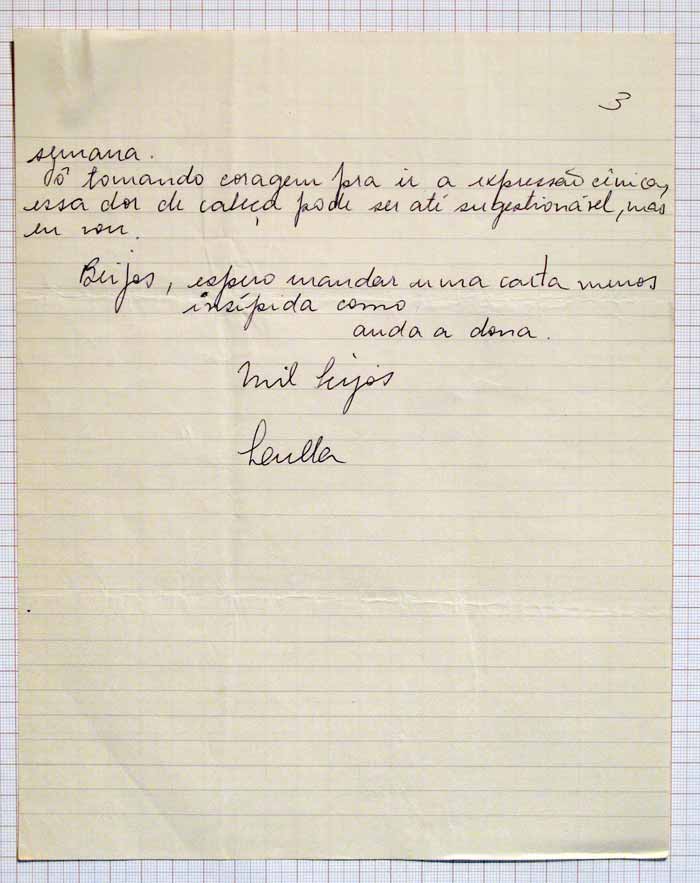 3
semana.
Tô tomando coragem pra ir a expressão cênica,
essa dor de cabeça pode ser até sugestionável, mas
eu vou.
Beijos, espero mandar uma carta menos
insípida como
anda a dona.
Mil beijos